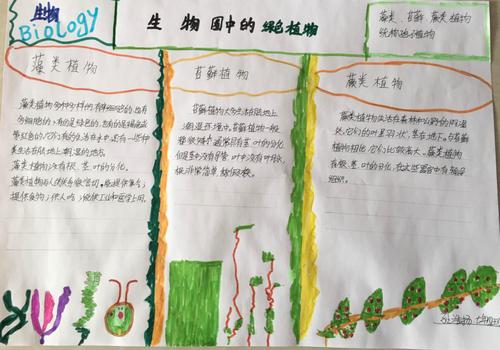 生物
Biology
生物圈中的绿色植物
藻类、苔藓、蕨类植物
统称孢子植物
藻类植物
藻类植物多种多样的,有单细胞的,也有
多细胞的;有的是绿色的,也有的是褐色或
带红色的,它们有的生活在水中,还有一些种
类生活在陆地上潮湿的地方。
藻类植物没有根、茎、叶的分化。
藻类植物与人类关系密切,能提供氧气;
提供食物;供人吃;能供工业和医学上用。
苔藓植物
苔藓植物大多生活在陆地上
潮湿环境中。苔藓植物一般
都很矮小,通常具有茎、叶的分化
但是茎中没有导管,叶中没有叶脉,
根非常简单,称假根。
蕨类植物
蕨类植物生活在森林中山野的阴湿
处。它们的叶呈羽状,茎在地下。与苔藓
植物相比,它们比较高大。蕨类植物
有根、茎、叶的分化,在这些器官中有输导
组织。